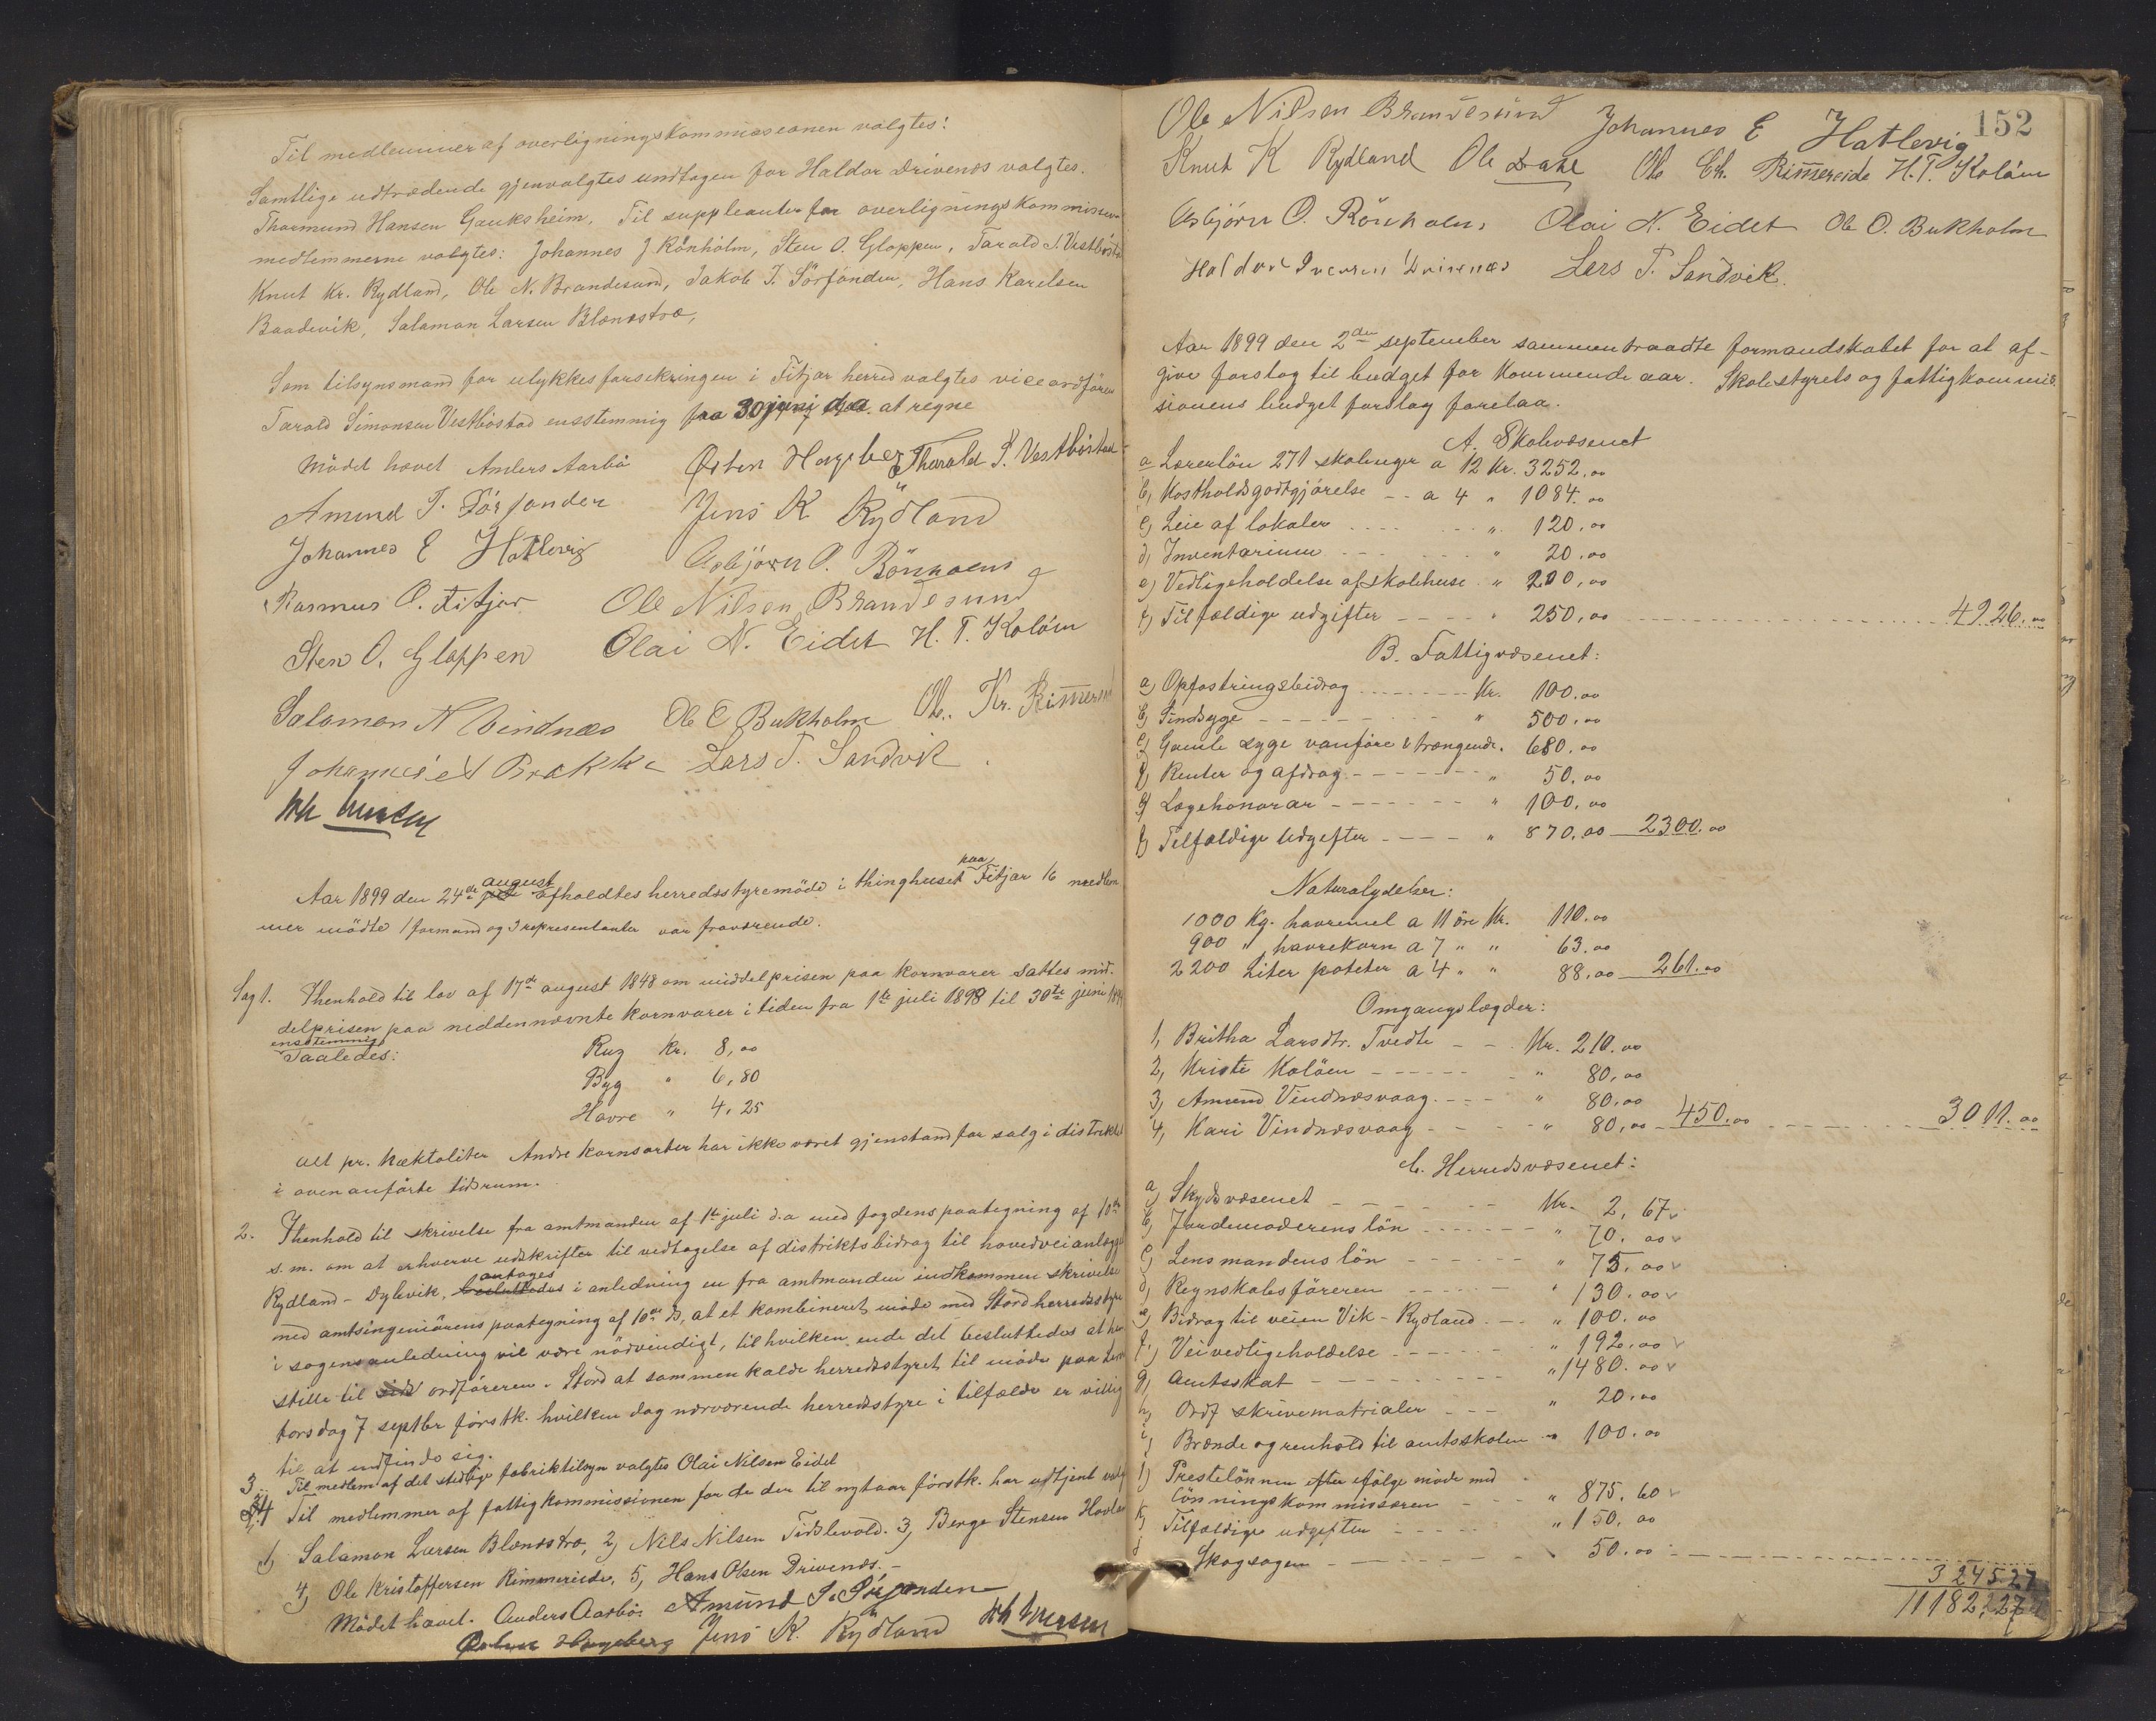 Til medlemmer af overligningskommissionen valgtes:
Samtlige udtrædende gjenvalgtes undtagen for Haldor Drivenes valgtes.
Thormund Hansen Gauksheim. Til suppleanter for overligningskommissions
medlemmerne valgtes: Johannes J Rönholm, Sten O. Gloppen, Tarald S. Vestböstad
Knut Kr. Rydland, Ole N. Brandesund, Jakob T. Sörfonden, Hans Karelsen
Baadevik, Salamon Larsen Blænestrø,
Som tilsynsmand for ulykkesforsikringen i Fitjar herred valgtes viceordförer
Tarald Simonsen Vestböstad ensstemmig fra 30 juni d.a. at regne
Mödet hævet Anders Aarbö Østen Hageberg Tharald S. Vestböstad
Amund T. Sörfonden Jens K Rydland
Johannes E Hatlevig Asbjörn O. Rönholm
Rasmus O. Fitjar Ole Nilsen Brandesund
Sten O. Gloppen Olai N. Eidet H. T. Kolöen
Salamon N Vindnæs Ole O Bukholm Ole Kr. Rimmereid
Johannes A Brakke Lars T. Sandvik
Aar 1899 den 24de august afholdtes herredsstyremöde i thinghuset paa Fitjar 16 medlem
mer mödte 1 formand og 3 representanter var fraværende.
Sag 1. I henhold til lov af 17de august 1848 om middelprisen paa kornvarer sattes mid-
delprisen paa neddennævnte kornvarer i tiden fra 1ste juli 1898 til 30te juni 1899
ensstemmig
saaledes:
Rug Kr. 8,00
Byg " 6,80
Havre " 4,25
alt pr. hæktoliter Andre kornsorter har ikke været gjenstand for salg i distriktet
i ovenanförte tidsrum.
2. I henhold til skrivelse fra amtmanden af 1ste juli d.a med fogdens paategning af 10de
s.m. om at erhverve udskrifter til vedtagelse af distriktsbidrag til hovedveianlægget
Rydland - Dylevik, besluttedes antoges i anledning en fra amtmanden indkommen skrivelse
med amtsingeniörens paategning af 10de ds, at et kombineret möde med Stord herredsstyre
i sagens anledning vil være nödvendigt, til hvilken ende det besluttedes at hen
stille til ordföreren i Stord at sammenkalde herredsstyret til möde paa
torsdag 7 septbr förstk. hvilken dag nærværende herredsstyre i tilfælde er villig
til at indfinde sig.
3. Til medlem af det stedlige fabriktilsyn valgtes Olai Nilsen Eidet
4 Til medlemmer af fattigkommissionen for de der til nytaar förstk. har udtjent valgtes
1, Salamon Larsen Blænestrø, 2, Nils Nilsen Tislevold. 3, Berge Stensen
4, Ole Kristoffersen Rimmereide, 5, Hans Olsen Drivenes.-
Mödet hævet. Anders Aarbö Amund T. Sörfonden
Østen Hageberg Jens K. Rydland
152
Ole Nilsen Brandesund Johannes E Hatlevig
Knut K Rydland Ole Dahl Ole Chr. Rimmereide H. T. Kolöen
Asbjörn O. Rönholm, Olai N. Eidet Ole O. Bukholm
Haldor Iversen Drivenes Lars T. Sandvik.
Aar 1899 den 2den september sammentraadte formandskabet for at af-
give forslag til budget for kommende aar. Skolestyrets og fattigkommis
sionens budget forslag forelaa.
A. Skolevæsenet
a Lærerlön 271 skoleuger a 12 Kr. 3252.00
b, Kostholdsgodtgjörelse - - a 4 " 1084.00
c, Leie af lokaler " 120.00
d, Inventarium " 20.00
e, Vedligeholdelse af skolehuse " 200.00
f, Tilfældige udgifter " 250.00 4926.00
B. Fattigvæsenet:
a, Opfostringsbidrag Kr. 100.00
b, Sindsyge " 500.00
c, Gamle syge vanföre & trængende. 680.00
d, Renter og afdrag " 50.00
e, Lægehonorar " 100.00
f, Tilfældige udgifter " 870.00 2300.00
Naturalydelser:
1000 Kg. havremel a 11 öre Kr. 110.00
900 " havrekorn a 7 " " 63.00
2200 Liter poteter a 4 " " 88.00 261.00
Omgangslægder:
1, Britha Larsdtr. Tvedte Kr. 210.00
2, Kristi Kolöen " 80.00
3, Amund Vindnæsvaag " 80.00
4, Kari Vindnæsvaag " 80.00 450.00 3011.00
C. Herredsvæsenet:
a, Skydsvæsenet Kr. 2,67
b, Jordemoderens lön " 70.00
c, Lensmandens lön " 75.00
d, Regnskabsföreren " 130.00
e, Bidrag til veien Vik - Rydland " 100.00
f, Veivedligeholdelse " 192.00
g, Amtsskat " 1480.00
h, Ordf skrivematrialer " 20.00
i, Brænde og renhold til amtsskolen " 100.00
j, Prestelönnen efter ifölge möde med
lönningskommissæren " 875.60
k, Tilfældige udgifter " 150.00
Skogsagen 50.00
3245.27
11182.27